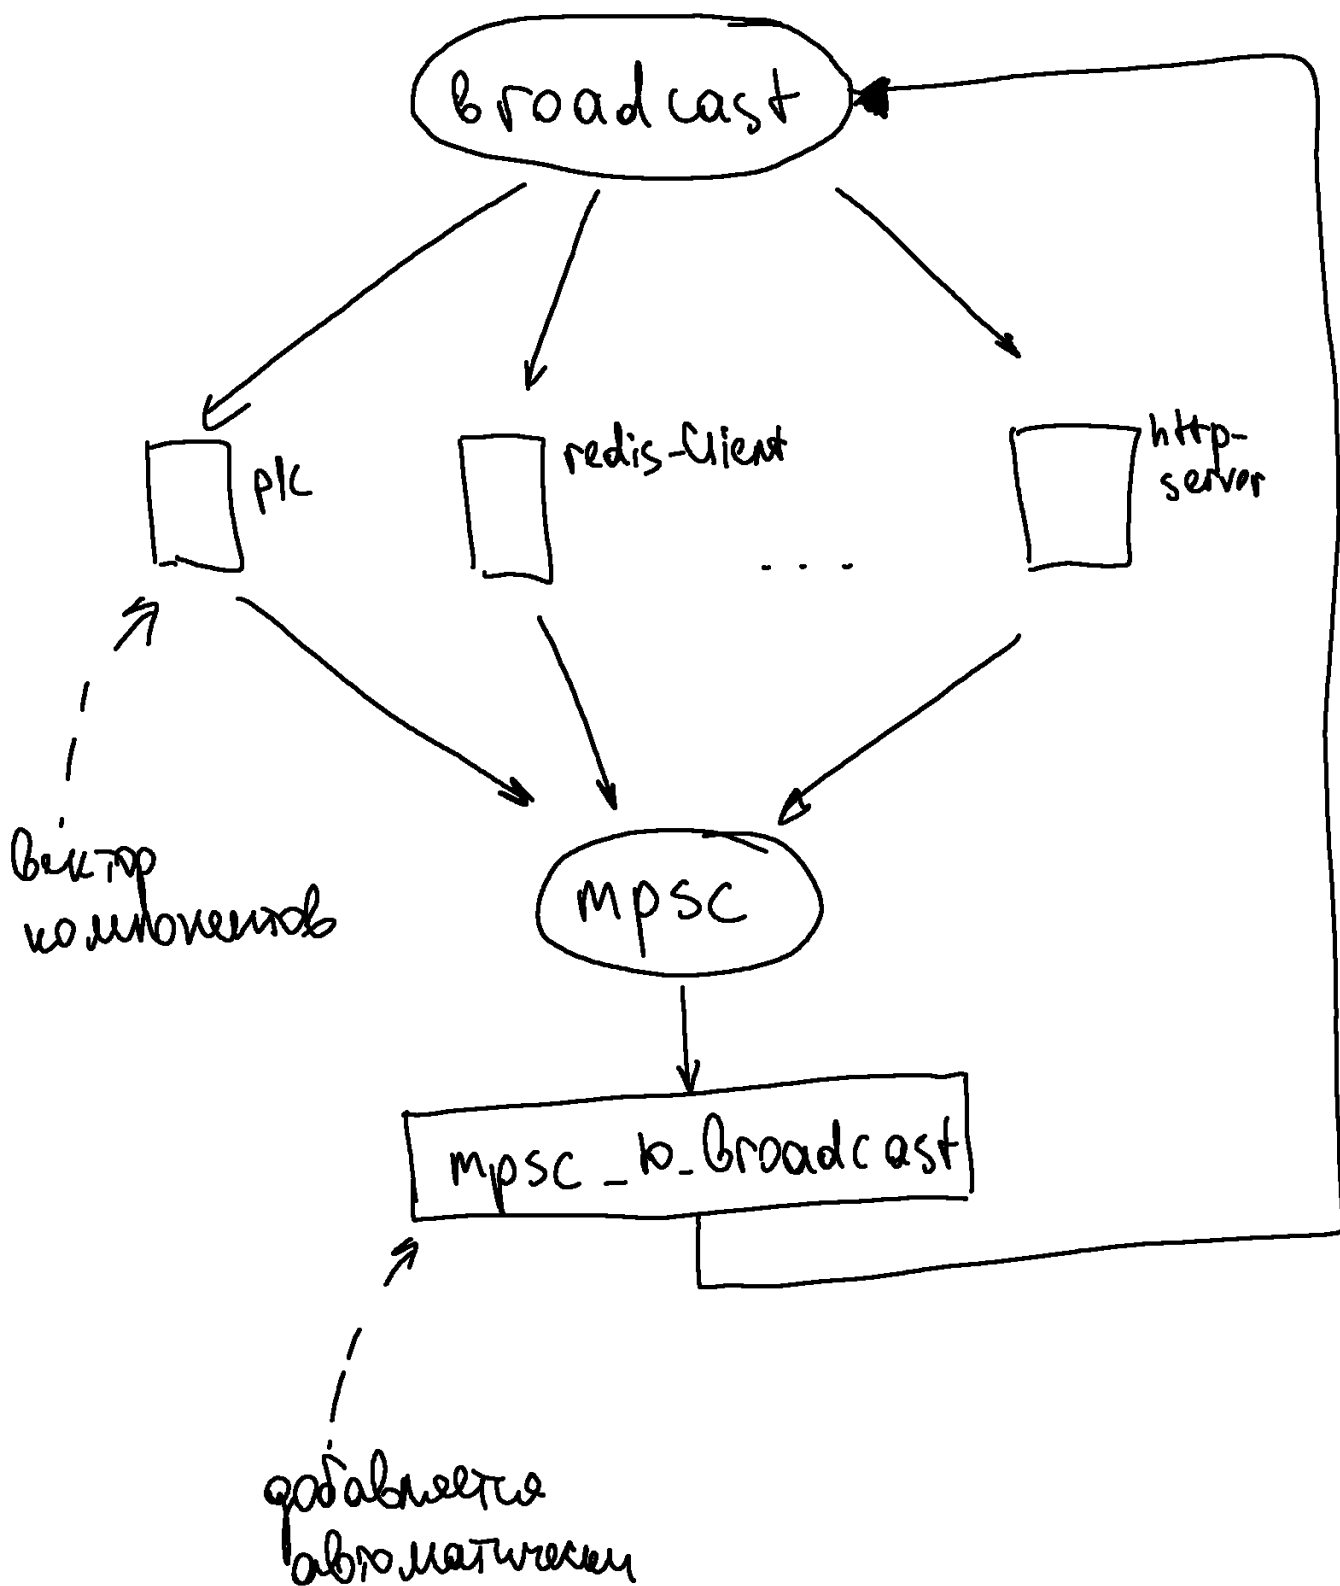 broadcast
plc
redis-client
http-
server
. . .
вектор
компонентов
mpsc
mpsc_to_broadcast
добавляется
автоматически